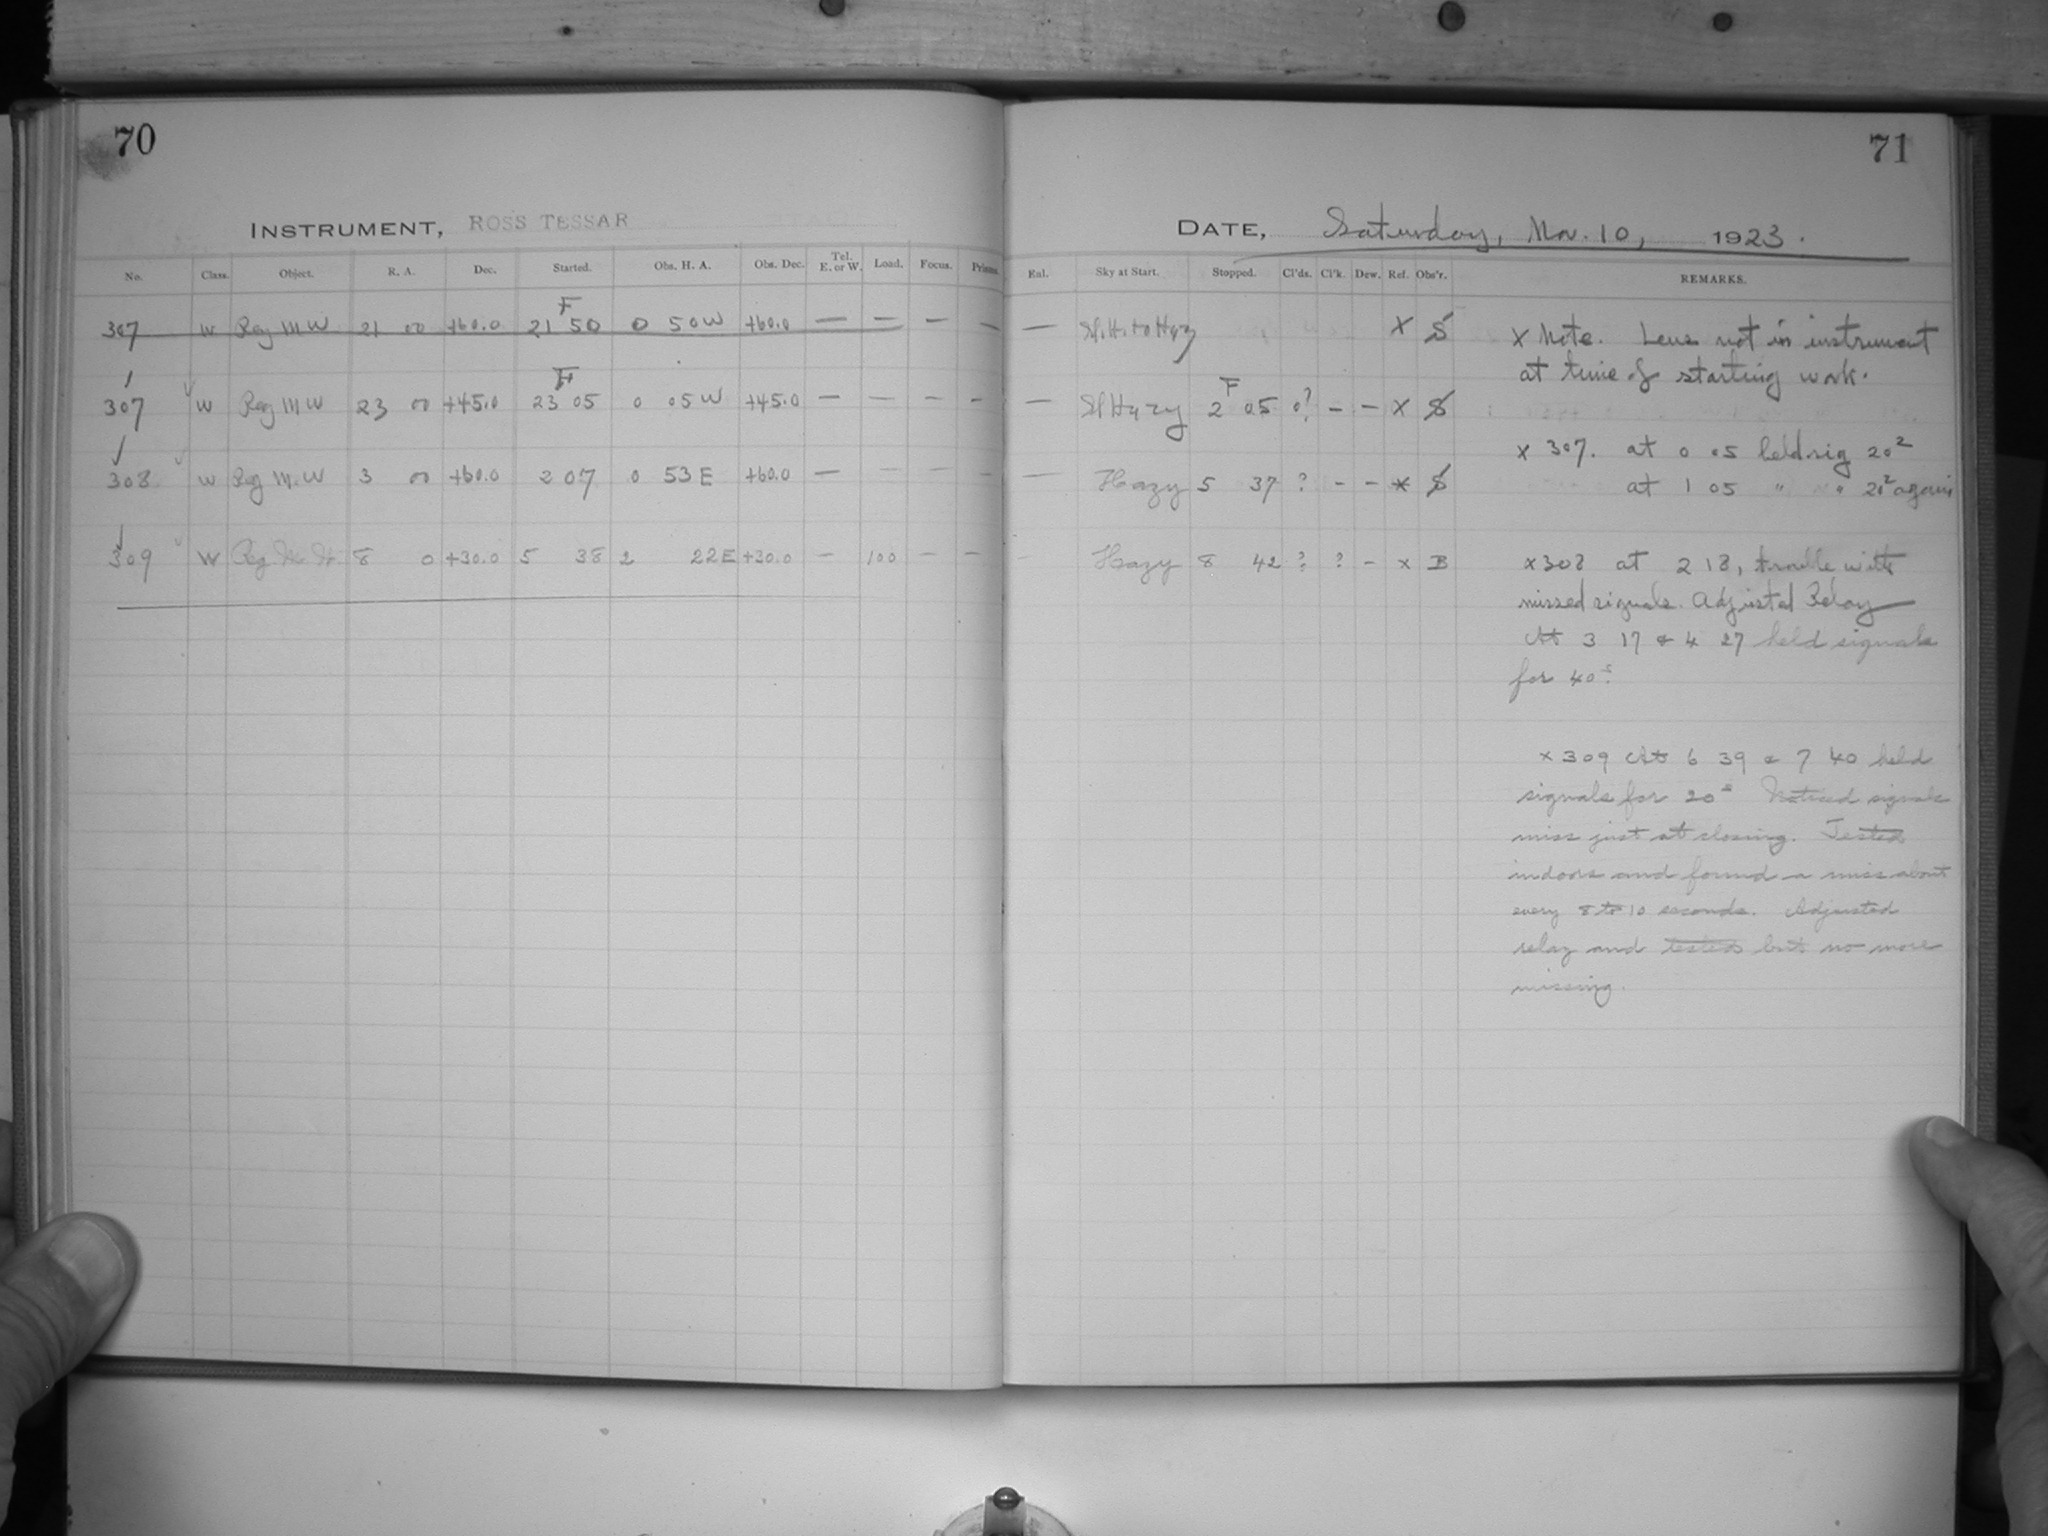 70
INSTRUMENT, ROSS TESSAR
No. Class. Object. R. A. Dec. Started. Obs. H. A. Obs. Dec. Tel. E. or W. Load. Focus. Prisms.
307 W Reg M W 21 00 +60.0 F 21 50 0 50 W +60.0 — — — —
307 W Reg M W 23 00 +45.0 F 23 05 0 05 W +45.0 — — — —
308 W Reg M. W 3 00 +60.0 2 07 0 53 E +60.0 — — — —
309 W Reg 8 0 +30.0 5 38 2 22 E +30.0 — 100 — —
71
DATE, Saturday, Nov. 10, 1923.
Enl. Sky at Start. Stopped. Cl'ds. Cl'k. Dew. Ref. Obs'r. REMARKS.
— Sl. H. to Hazy X S
— Sl Hazy F 2 05 0? – – X S
— Hazy 5 37 ? – – X S
— Hazy 8 42 ? ? – x B
x Note. Lens not in instrument
at time of starting work.
x 307. at 0 05 held sig 20s
at 1 05 " " 20s again
x 308 at 2 18, trouble with
missed signals. Adjusted Relay
At 3 17 & 4 27 held signals
for 40s.
x 309 At 6 39 & 7 40 held
signals for 20s Noticed signals
miss just at closing. Tested
indoors and found a miss about
every 8 to 10 seconds. Adjusted
relay and tested but no more
missing.